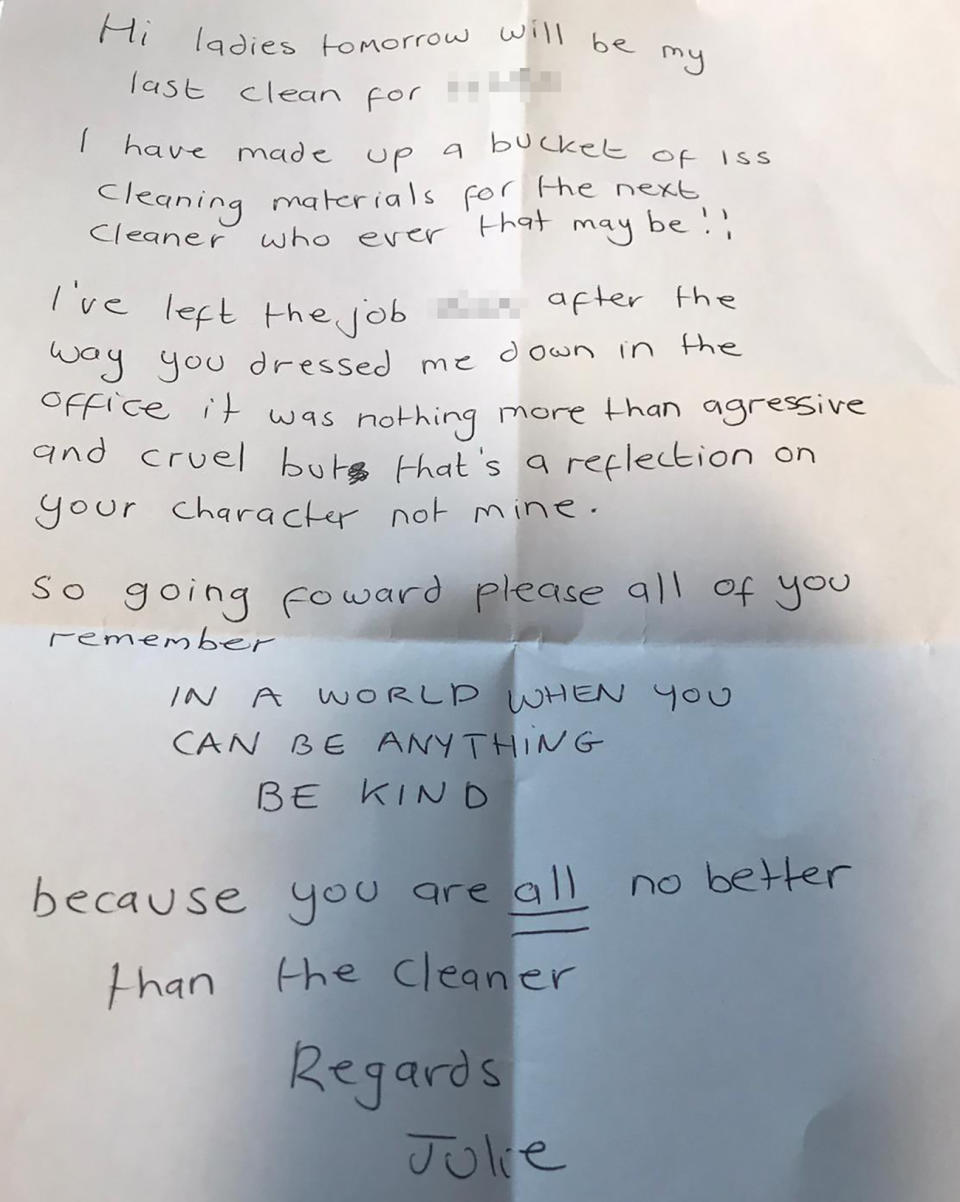 Hi ladies tomorrow will be my
last clean for
I have made up a bucket of iss
cleaning materials for the next
cleaner who ever that may be!!
I've left the job after the
way you dressed me down in the
office it was nothing more than agressive
and cruel but that's a reflection on
your character not mine.
So going foward please all of you
remember
IN A WORLD WHEN YOU
CAN BE ANYTHING
BE KIND
because you are all no better
than the cleaner
Regards
Julie